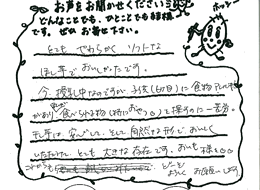 お声をお聞かせください
どんなことでも、ひとことでも結構
です。ぜひ お寄せ下さい。
とても やわらかく ソフトな
ほし芋で おいしかったです。
今、授乳中なのですが 子供(6ヶ月)に 食物アレルギー
があり 食べられる物(特におやつ)を探すのに一苦労。
干し芋は、安心して そして 自然な形で おいしく
いただけて、とても 大きな存在です。おいも様
これからも どーぞ
よろしく お願いします